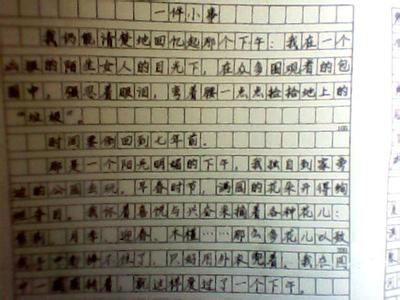 一件小事
我仍能清楚地回忆起那个下午：我在一个
凶狠的陌生女人的目光下，在众多围观者的包
围中，强忍着眼泪，弯着腰一点点捡拾地上的
“垃圾”。
100
时间要倒回到七年前。
那是一个阳光明媚的下午，我独自到家旁
边的公园去玩。早春时节，满园的花朵开得绚
丽夺目。我怀着喜悦与兴奋采摘着各种花儿：
月季、迎春、木槿……那么多花儿以致
200
我手中都捧不住了，只好用外衣兜着。我在园
中一蹦蹦跳着，就这样度过了一个下午。